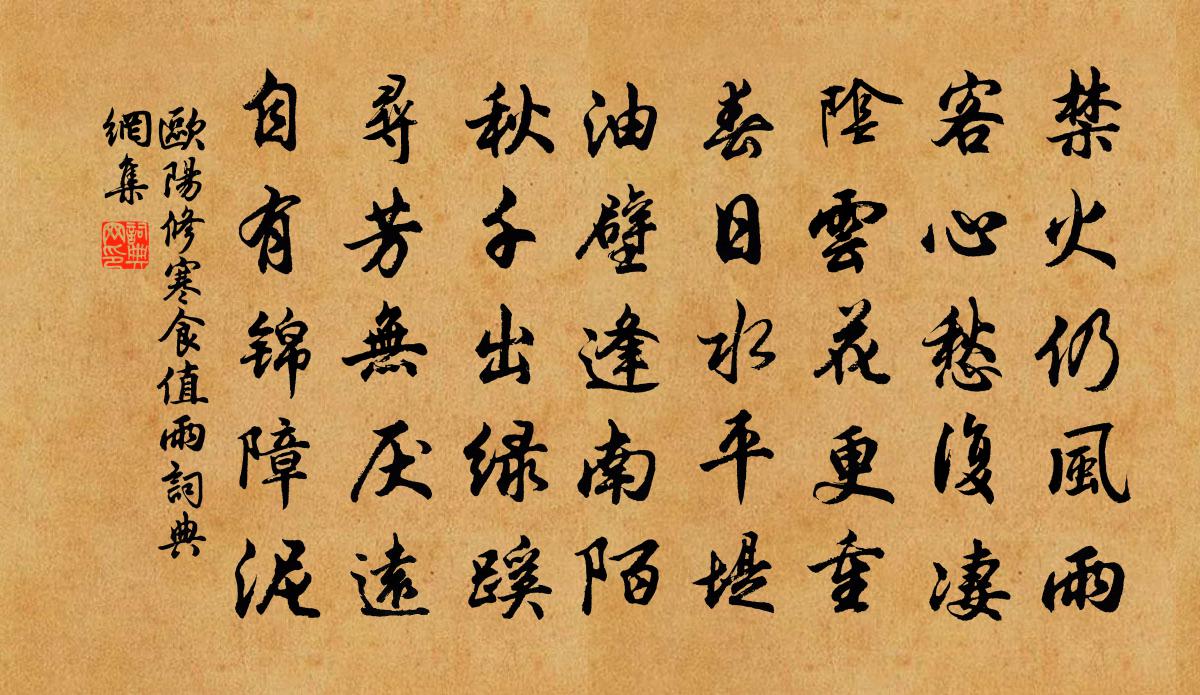 禁火仍風雨
客心愁復凄
陰雲花更重
春日水平堤
油壁逢南陌
秋千出綠蹊
尋芳無厌遠
自有锦障泥
歐陽修寒食值雨詞典
網集
詞典
网印